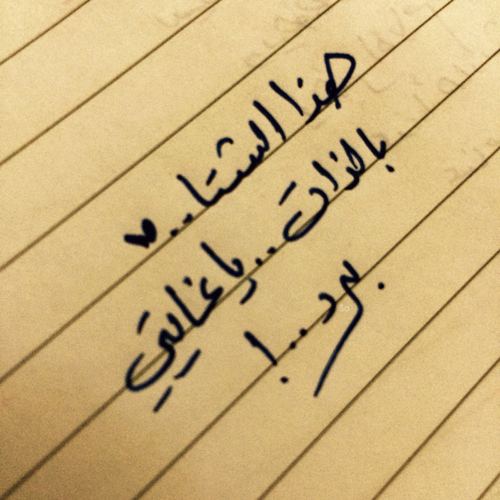 هذا الشتا..♥
بالذات.. يا غالیتي
برد..!